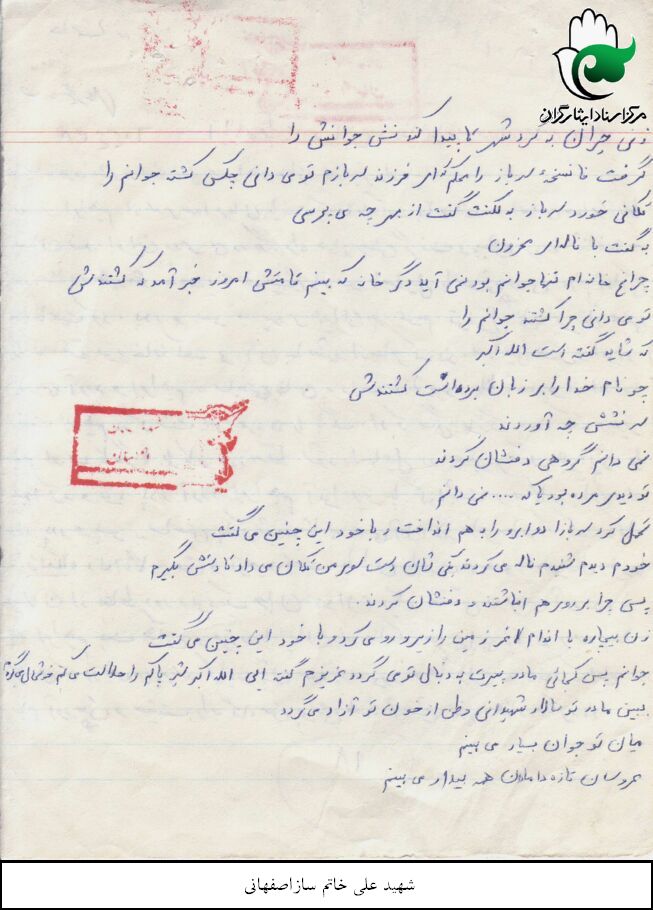 مرکز اسناد ایثارگران
زنی حیران به گرد شهر تا پیدا کند نعش جوانش را
گرفت سرباز را محکم که ای فرزند سربازم تو می دانی چه کسی کشته جوانم را
تکانی خورد سرباز به لکنت گفت از بهر چه می پرسی
بگفت با ناله ای محزون
چراغ خانه ام تنها جوانم بود نمی آید دگر خانه که بینم قامتش امروز خبر آمد که کشتندش
تو می دانی چرا کشته جوانم را
که شاید گفته است الله اکبر
چو نام خدا را بر زبان برده است کشتندش
سر نعشش چه آوردند
نمی دانم گروهی دفنشان کردند
تو دیدی مرده بود یا که .... نمی دانم
تحمل کرد سرباز دو ابرو را به هم انداخت و با خود این چنین می گفت
خودم دیدم شنیدم ناله می کردند یکی شان دست سوی من تکان می داد تا دستش بگیرم
پس چرا بر روی هم انباشتند و دفنشان کردند.
زن بیچاره با اندام لاغر زمین را زیر و رو می کرد و با خود این چنین می گفت
جوانم پس کجائی مادر پیرت به دنبال تو می گردد عزیزم گفته ایی الله اکبر شیر پاکم را حلالت می کنم
ببین مادر تو سالار شهیدانی وطن از خون تو آزاد می گردد
میان تو جوان بسیار می بینم
عروسان تازه دامادان همه بیدار می بینم
شهید علی خاتم سازاصفهانی